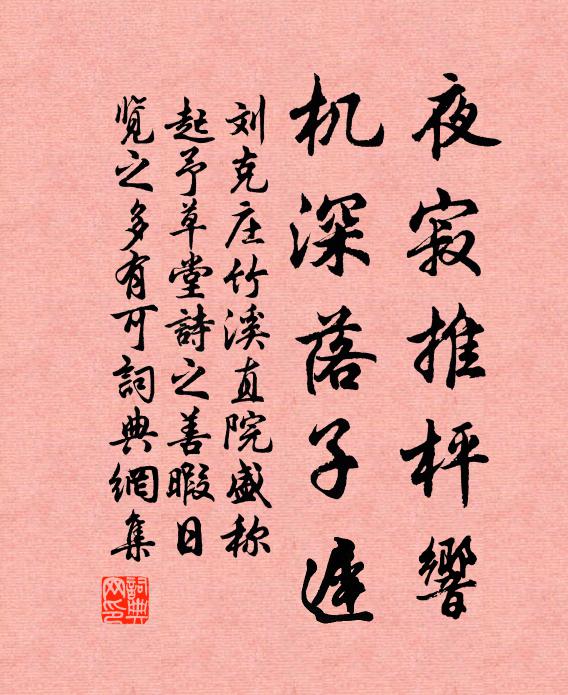 夜寂推枰響
机深落子遲
刘克庄竹溪直院盛称
起予草堂詩之善暇日
覧之多有可詞典網集
詞典网印